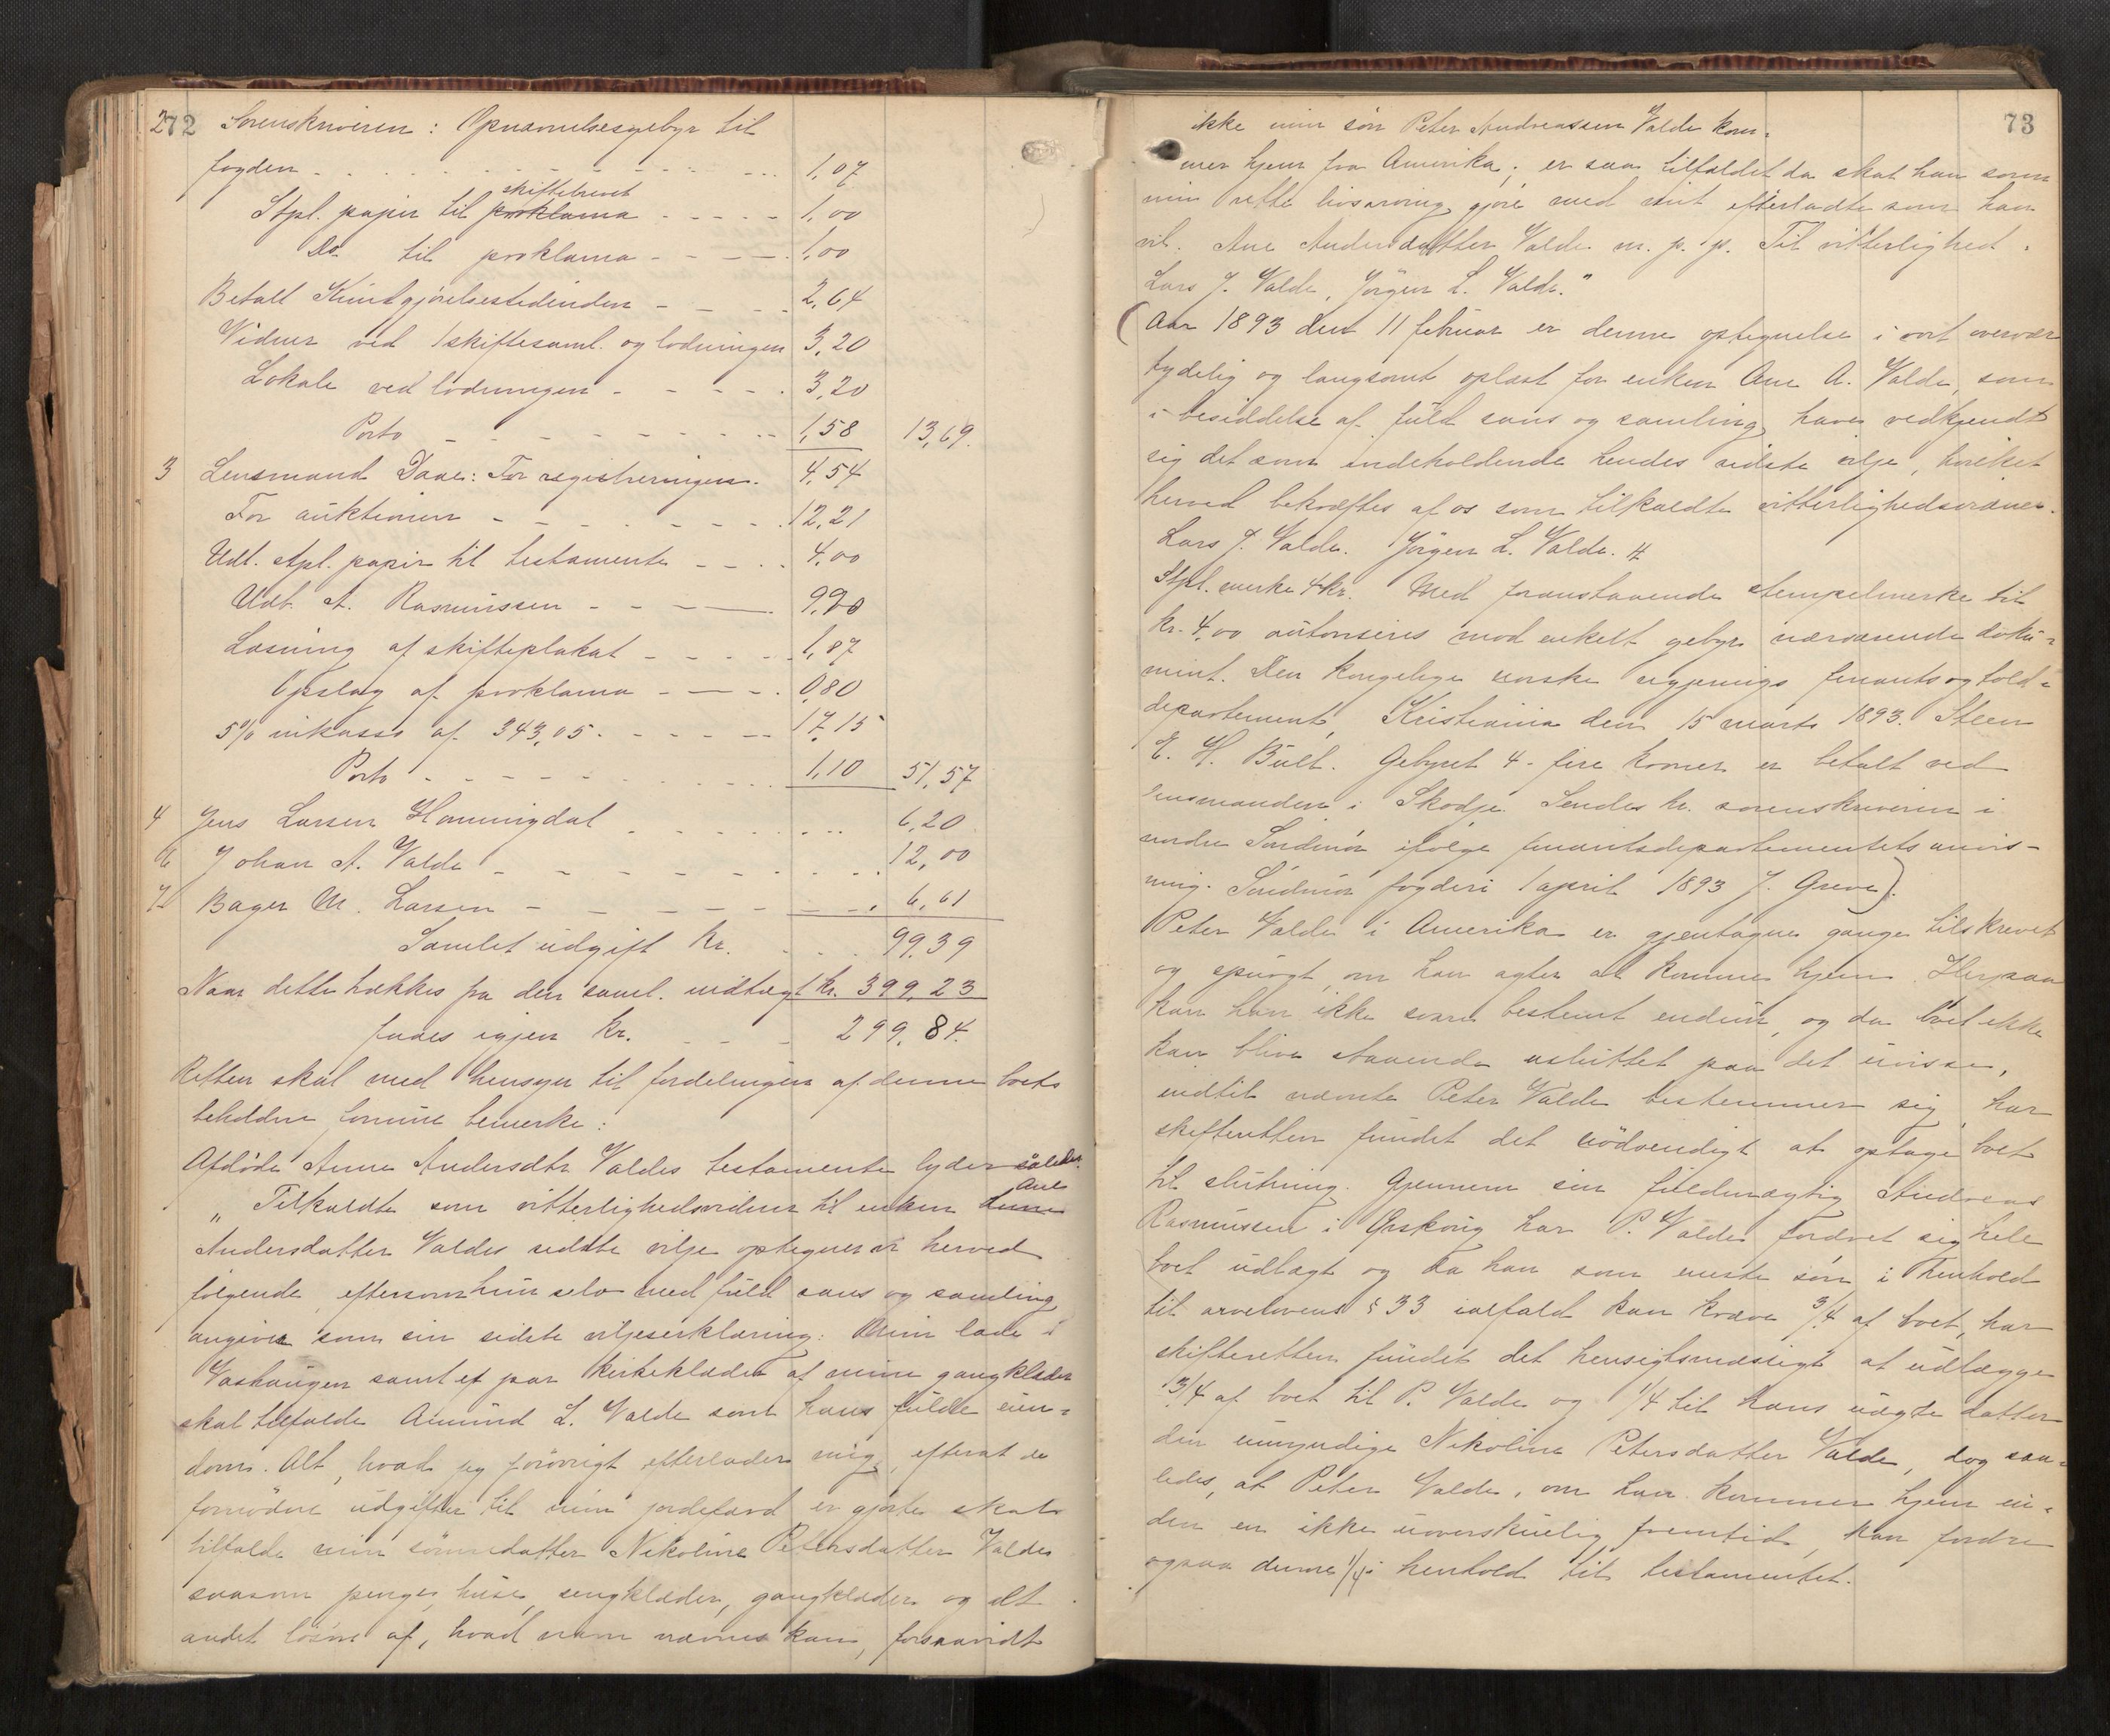 272 Sorenskriveren: Opnævnelsesgebyr til
fogden 1,07
Stpl. papir til proklama skiftebrevet 1,00
Do til proklama 1,00
Betalt Kundgjørelsestidenden 2,64
Vidner ved 1 skiftesaml. og lodningen 3,20
Lokale ved lodningen 3,20
Porto 1,58 13,69.
3 Lensmand Daae: For registreringen. 4,54
For auktionen 12,21
Udl. stpl. papir til testamente 4,00
Udb. A. Rasmussen 9,90
Læsning af skifteplakat 1,87
Opslag af proklama 0,80
5% inkasso af 343,05. 17,15
Porto 1,10 51,57
4 Jens Larsen Hammingdal 6,20
6 Johan A. Valde 12,00
7 Bager M. Larsen 6,61
Samlet udgift kr. 99,39
Naar dette trækkes fra den saml. indtægt kr. 399,23
faaes igjen kr. 299,84.
Retten skal med hensyn til fordelingen af denne boets
beholdne formue bemerke:
Afdøde Anne Andersdtr Valdes testamente lyder saaledes.
„Tilkaldte som vitterlighedsvidner til enken Anne Ane
Andersdatter Valdes sidste vilje optegner vi herved
følgende, eftersom hun selv med fuld sans og samling
angiver som sin sidste viljeserklæring: Min lade i
Vashaugen samt et par kirkeklæder af mine gangklæder
skal tilfalde Amund L. Valde som hans fulde eien-
dom. Alt, hvad jeg forøvrigt efterlader mig, efterat de
fornødne udgifter til min jordefærd er gjorte skal
tilfalde min sønnedatter Nikoline Petersdatter Valde
saasom penge, huse, sengklæder, gangklæder og alt
andet løsøre af, hvad navn nævnes kan, forsaavidt
73
ikke min søn Peter Andreassen Valde kom-
mer hjem fra Amerika; er saa tilfældet da skal han som
min rette livsarving gjøre med mit efterladte som han
vil. Ane Andersdatter Valde m. p. p. Til vitterlighed.
Lars J. Valde, Jørgen L. Valde."
(Aar 1893 den 11 februar er denne optegnelse i vort overvær
tydelig og langsomt oplæst for enken Ane A. Valde, som
i besiddelse af fuld sans og samling haver vedkjendt
sig det som indeholdende hendes sidste vilje, hvilket
herved bekræftes af os som tilkaldte vitterlighedsvidner.
Lars J. Valde. Jørgen L. Valde.
Stpl. merke 4 kr. Med foranstaaende stempelmerke til
kr. 4,00 autoriseres mod enkelt gebyr nærværende doku-
ment. Den kongelige norske regjerings finants og told-
departement, Kristiania den 15 marts 1893. Steen
E. H. Bull. Gebyret 4 - fire kroner er betalt ved
lensmanden i Skodje. Sendes hr. sorenskriveren i
nordre Søndmør ifølge finantsdepartementets anvis-
ning. Søndmør fogderi 1 april 1893 J. Greve).
Peter Valde i Amerika er gjentagne gange tilskrevet
og spurgt, om han agter at komme hjem. Herpaa
kan han ikke svare bestemt endnu, og da boet ikke
kan blive staaende usluttet paa det uvisse,
indtil nævnte Peter Valde bestemmer sig, har
skifteretten fundet det nødvendigt at optage boet
til slutning. Gjennem sin fuldmægtig Andreas
Rasmussen i Ørskoug har P. Valde fordret sig hele
boet udlagt og da han som eneste søn i henhold
til arvelovens § 33 ialfald kan kræve 3/4 af boet, har
skifteretten fundet det hensigtsmæssigt at udlægge
3/4 af boet til P. Valde og 1/4 til hans uægte datter
den umyndige Nikoline Petersdatter Valde, dog saa-
ledes, at Peter Valde, om han kommer hjem in-
den en ikke uoverskuelig fremtid, kan fordre
ogsaa denne 1/4 i henhold til testamentet.